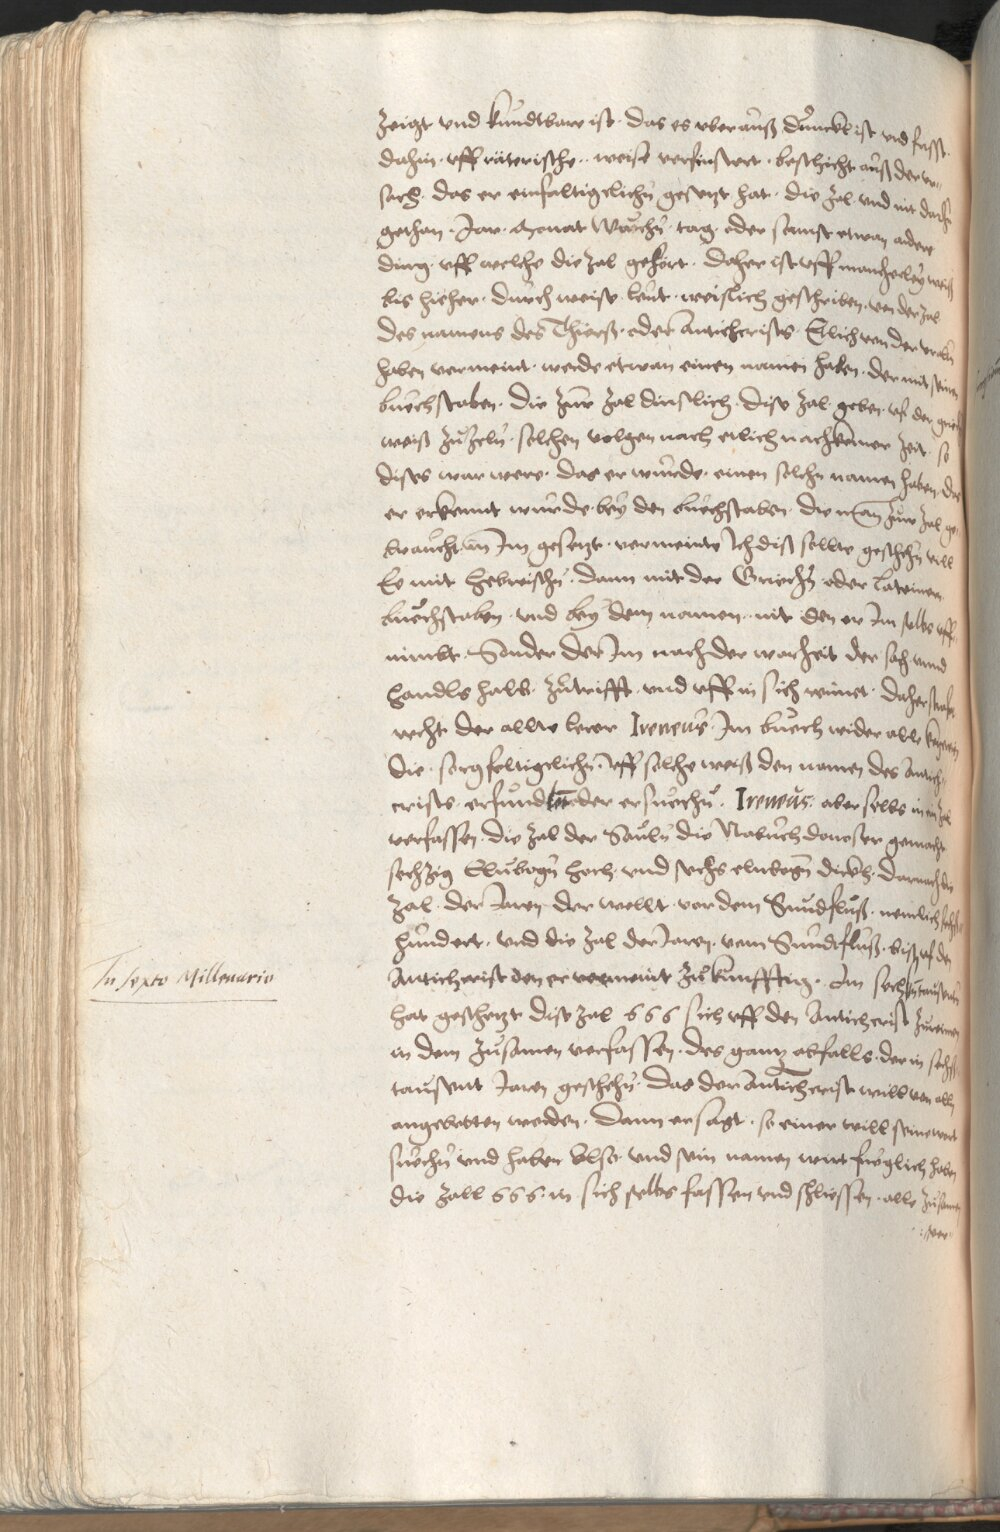 zeigt vnd kundtbar ist. das es vberauß dunckel ist vnd fasst
dahin. vff räterische.. weise verfinstert. beschicht auß der vr=
sach. das er einfaltigclichn gesetzt hat. die zal. vnd nit darzu
gethan. Jar. Monat Wuchn. tag. oder sunst etwan andere
ding. vff welche die zal gehört. Daher ist vff mancherley weiß
bis hieher. durch weise leüt. weislich geschriben. von der zal
des namens des Thierß. oder Antichrists. Etlich von der vralten
haben vermeint. werde etwan einen namen haben. der mit seinen
buechstaben. die zur zal dinstlich. dise zal geben. vf der griech
weiß zuzeln. solchen volgen nach etlich nachkomer zeit. so
dises war were. das er wurde. einen solchn namen haben. das
er erkennt wurde. bey den buechstaben. die man zur zal ge
braucht. Im gesetzt. vermeinte Ich diß sollte geschehn vill
Ee mit hebreischn. dann mit der Griechn. oder Lateiner
buechstaben. vnd bey dem namen. nit den er Im selbs vff
nimbt. Sonder der Im nach der warheit der sach vnnd
handls halb. zutrifft. vnd vff in sich reimet. daher strafet
recht der allte lerer Ireneus. Im buech wider alle ketzereyen
die. sorgfeltigclichn. vff solche weiß den namen des Antich=
rists. erfunden oder ersuechn. Ireneus. aber selbs in ein zal
verfassen. die zal der Sauln die Nabuchdonosor gemacht
sechzig Elnbogn hoch. vnd sechs elnbogn dickh. darnach die
zal. der Jaren der wellt. vor dem Sundfluß. nemlich sechs=
hundert. vnd die zal der Jaren. vom Sundtfluß. biß vf den
Antichrist den er vermeint zukunfftig. Im sechstausenten
hat gesetzt dise zal 666 sich vff den Antichrist zureimen
in dem zusamen verfassen. des gantz abfalls. der in sechs
tausent Jaren geschehn. Das der Antichrist will von allen
angebetten werden. Dann er sagt. so einer will seine wort
suechn vnd haben. Also. vnd sein namen wirt fueglich haben
die zall 666. in sich selbs fassen vnd schliessen. alle zusamen
ver=
In sexto Millenario